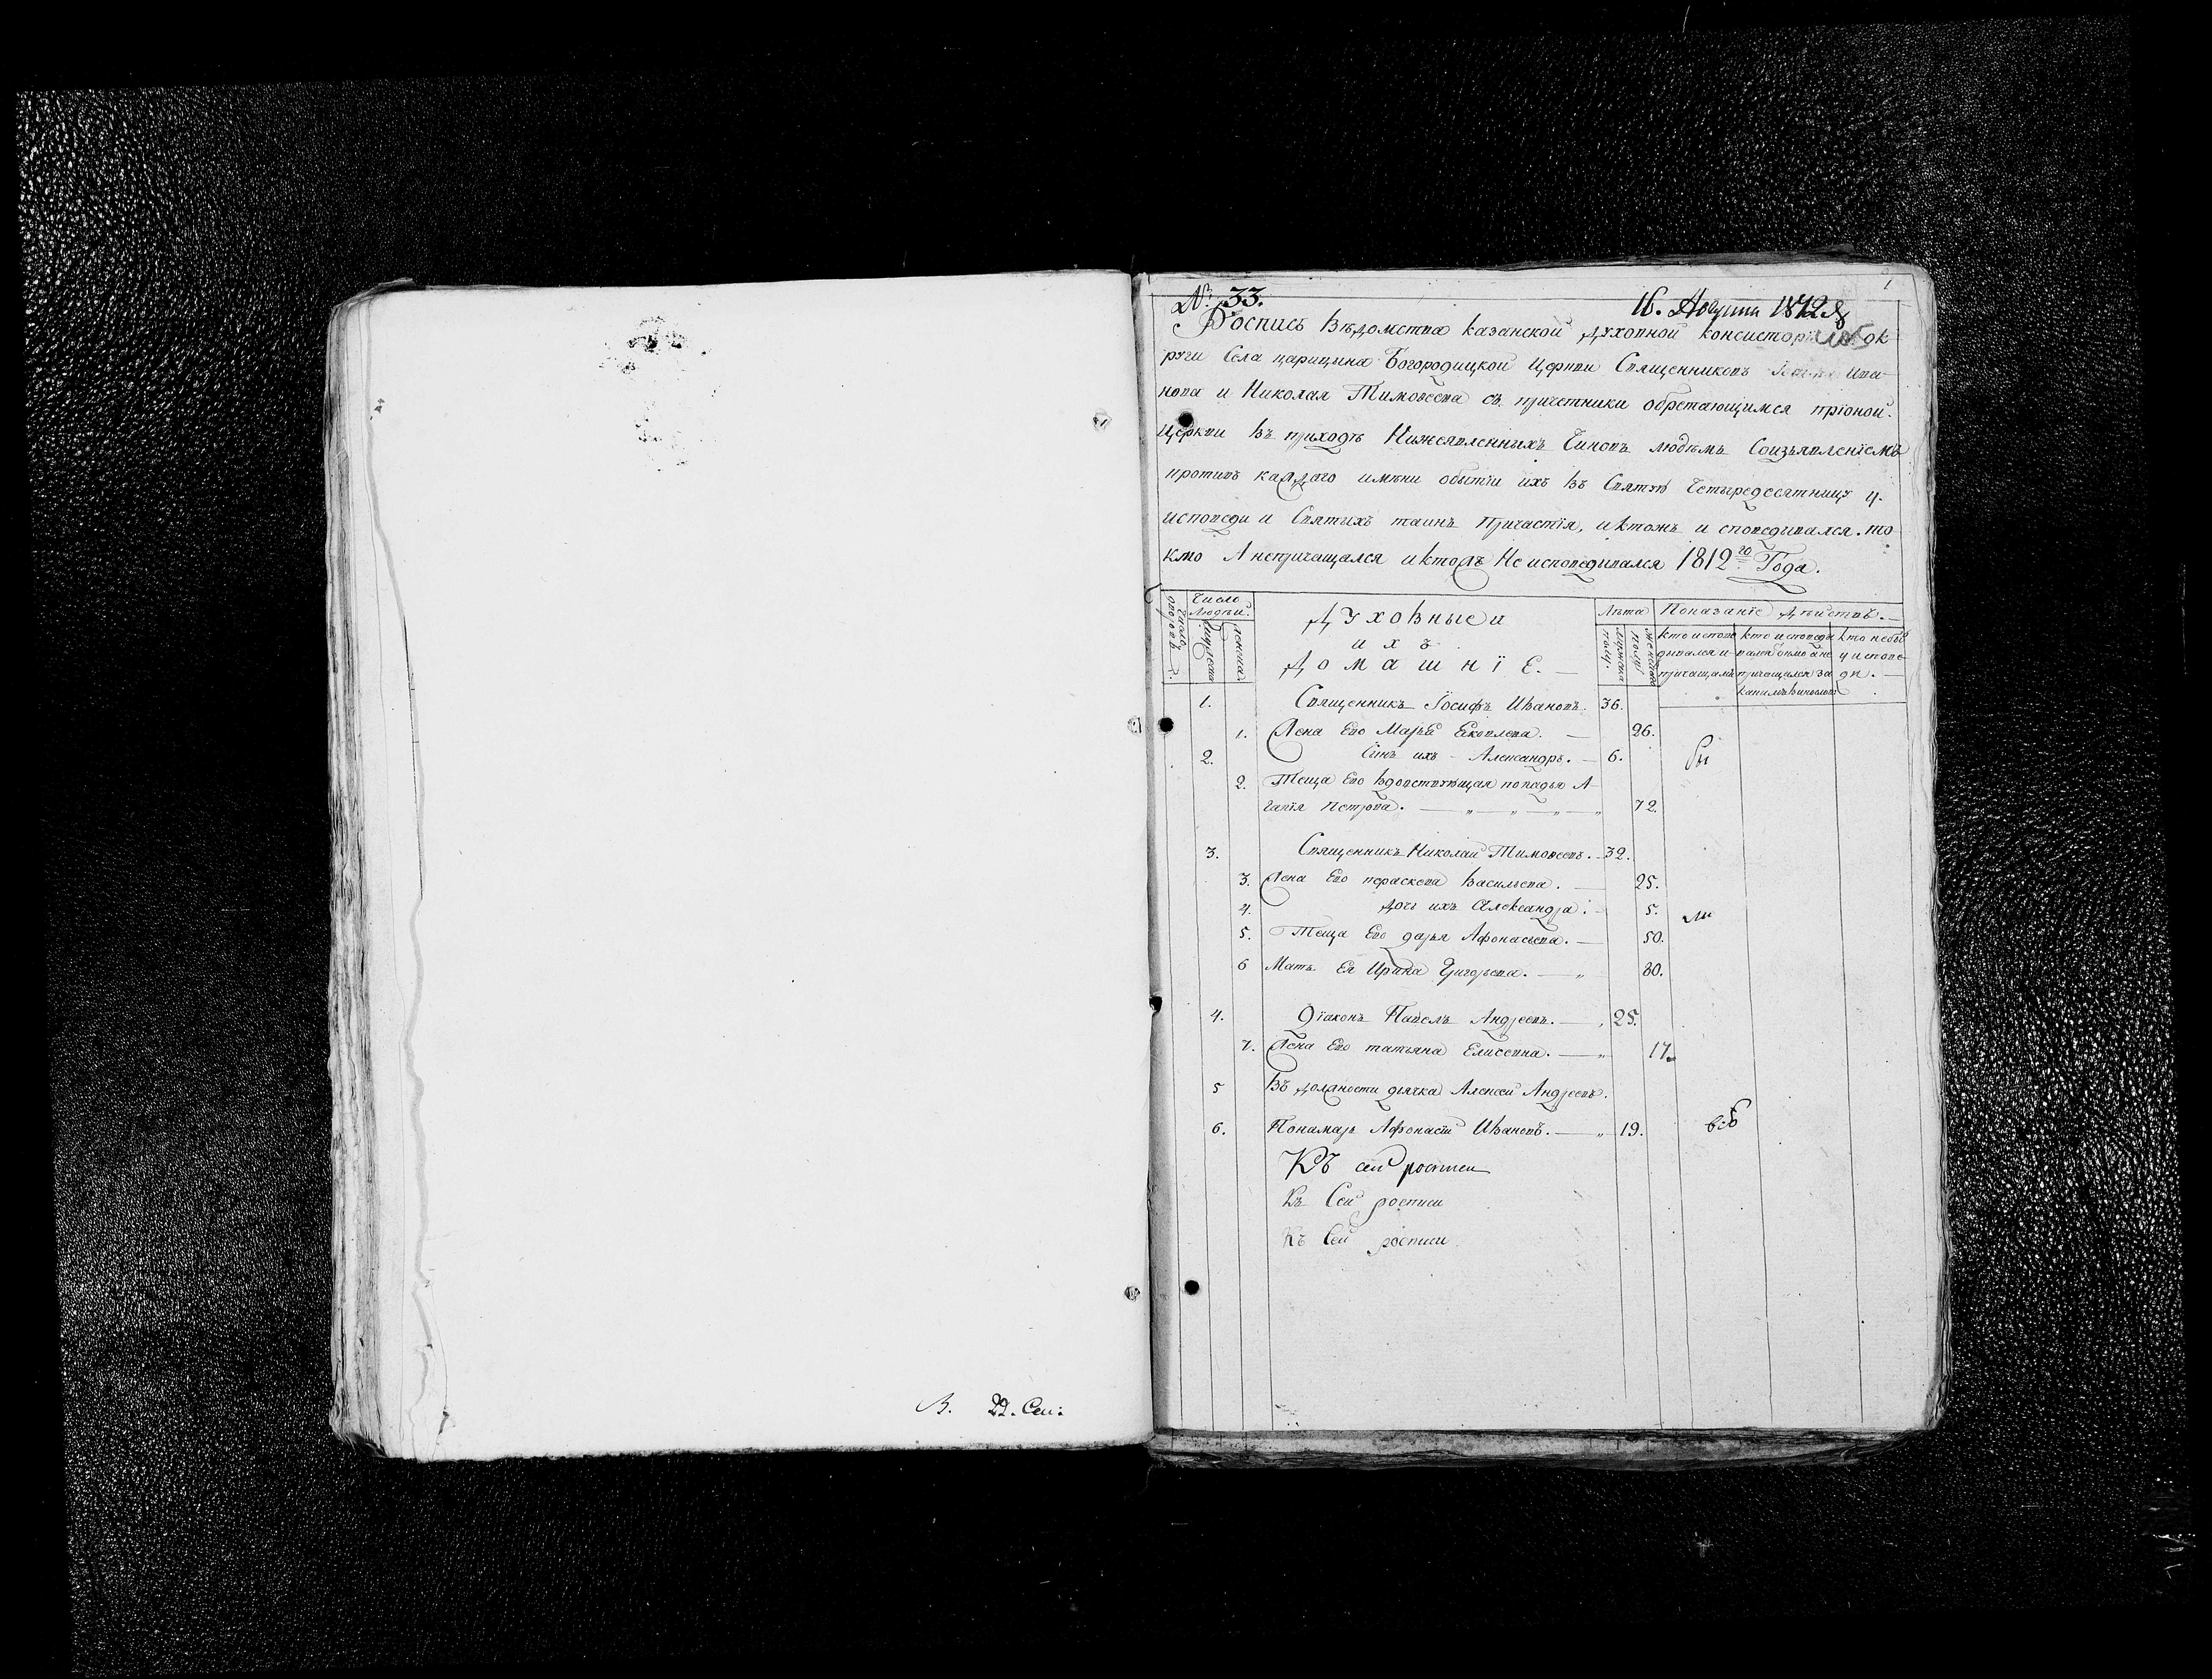 В. 22. Сен:
№ 33.
16. Августа 1812
Роспись Вѣдомства казанской духовной консисторіи ок
руги Села царицына Богородицкой Церкви Священниковъ Ива
нова и Николая Тимоѳеева съ причетники обретающимся прionой
Церкви въ приходѣ Нижеявленныхъ Чиновъ людѣмъ Соизъявленіемъ
противъ каждаго имѣни обытіи ихъ въ Святую Четыредесятницу у
исповеди и Святыхъ таинъ Причастія, иктожъ исповедывался. то
кмо А непричащался иктожъ Не исповедывался 1812го Года.
Число дворовъ.
Число Людѣй.
Мужеска
женска.
Духовные и
ихъ
Домашнїе.
Лѣта
мужеска полу.
женска полу
Показанїе дѣиствъ.
кто испове
дывался и
причащалъ
кто исповеда
вался токмо а не
причащался за
какимъ виномъ
кто небы
у испове
ди.
1. Священникъ Іосифъ Ивановъ. 36.
1. Жена Его Марья Яковлева. 26.
2. Сынъ ихъ Александръ. 6. бы
2. Теща Его вдовствующая попадья А
гапія Петрова. 72.
3. Священникъ Николай Тимоѳеевъ. 32.
3. Жена Его параскева Васильева. 25.
4. дочь ихъ Александра. 5. ли
5. Теща Его дарья Афонасьева. 50.
6 Мать Ея Ирина Григорьева. 80.
4. Діаконъ Павелъ Андреевъ. 25.
7. Жена Его татьяна Елисевна. 17.
5 Въ должности дьячка Алексей Андреевъ.
6. Понамарь Афонасій Ивановъ. 19. всѣ
Къ сей росписи
Къ Сей росписи
Къ Сей росписи